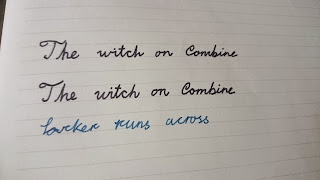 The witch on Combine
The witch on Combine
runs across